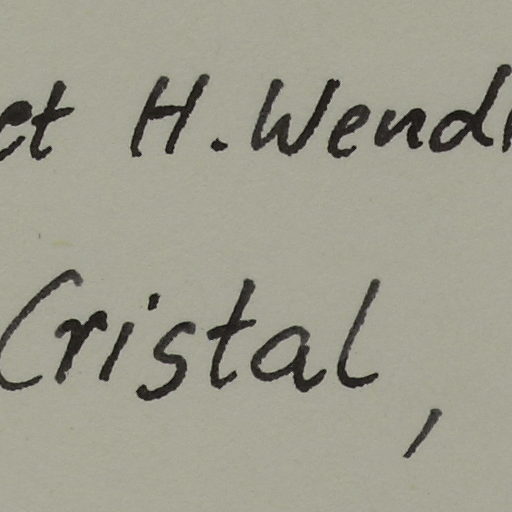 et H. Wendl
Cristal,